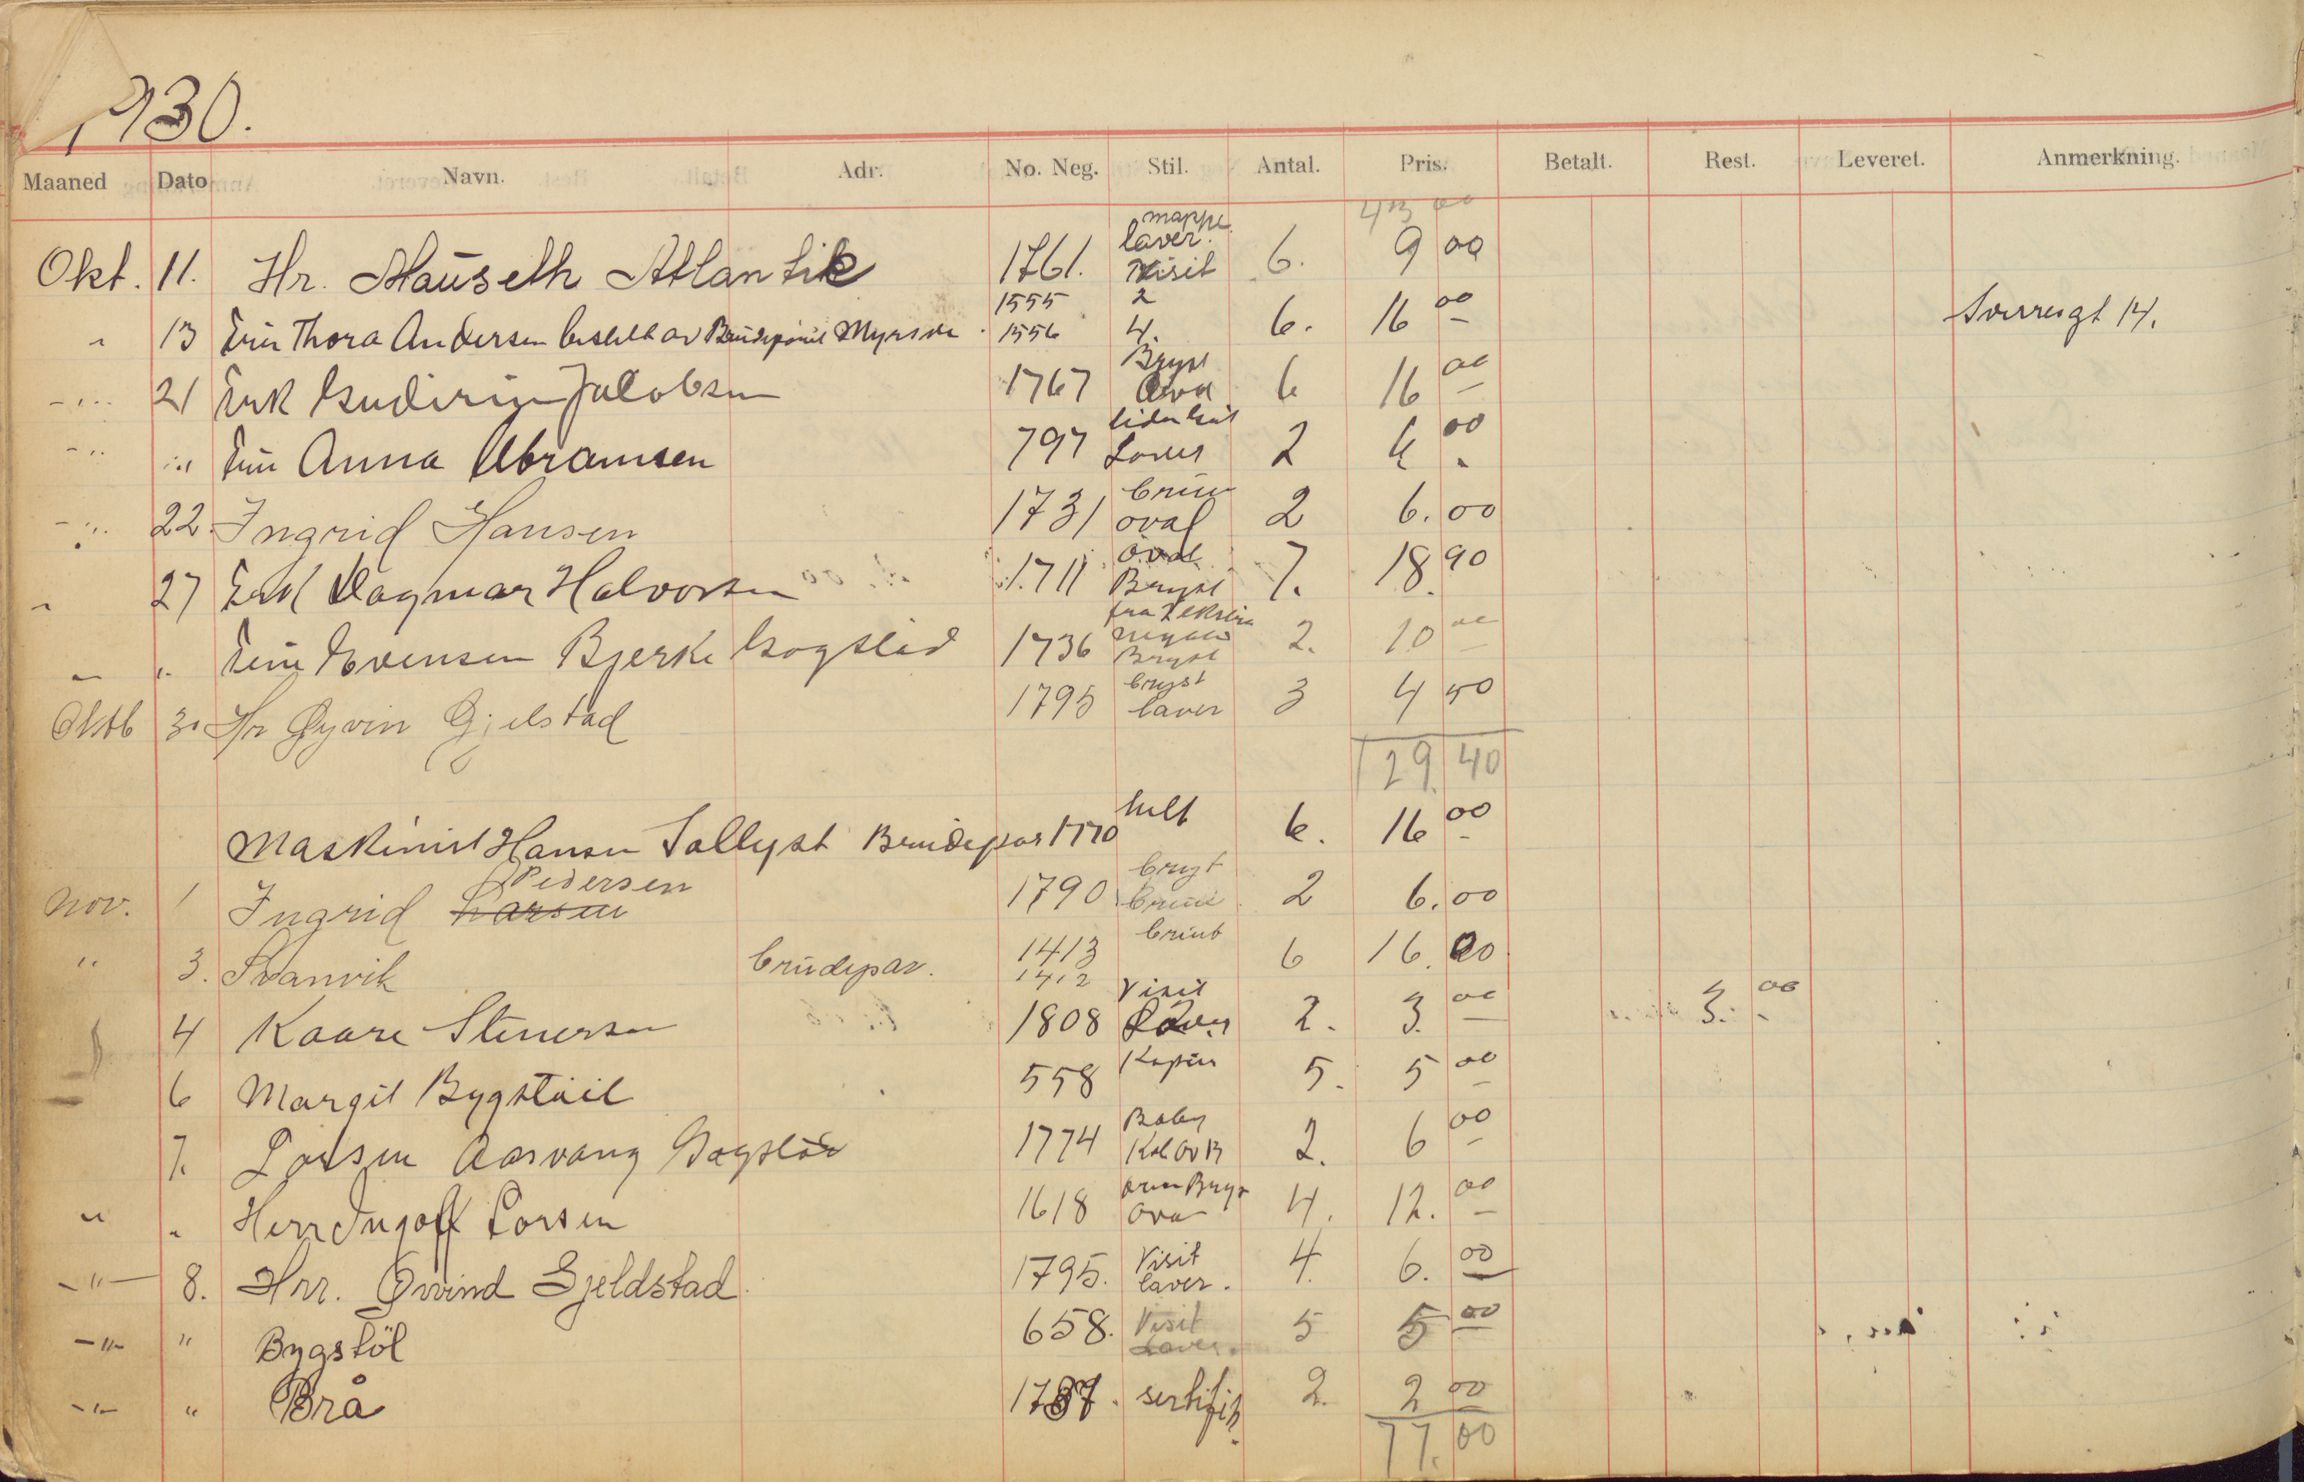 1930.
Maaned Dato Navn. Adr. No. Neg. Stil. Antal. Pris. Betalt. Rest. Leveret. Anmerkning.
43 00
mappe
Okt. 11. Hr. Mauseth Atlantik 1761. laver. Visit 6. 9 00
" 13 Fru Thora Andersen bestilt av Brudeparret Myrsve 1555 2 1556 4. 6. 16 00 14.
21 Frk Gudrun Jacobsen 1767 Bryst Oval 6 16 00
" Fru Anna Abramsen 797 Laver 2 6 00
22. Ingrid Hansen 1731 brun oval 2 6.00
" 27 Frk Dagmar Halvorsen 1711 Oval Bryst 7. 18.90
" " Fru Evensen Bjerke Bogslid 1736 Bryst 2. 10 00
Oktb 30 Hr Øyvin Gjelstad 1795 bryst laver 3 4 50
129.40
Maskinist Hansen Sollyst Brudepar 1770 helt 6. 16 00
Nov. 1 Ingrid Larsen Pedersen 1790 bryst brun 2 6.00
" 3. Svanvik brudepar. 1413 1412 6 16.00
4 Kaare Stenersen 1808 Visit Laver 2. 3. 00 3. 00
6 Margit Bygstøil 558 Kopier 5. 5 00
7. Larsen Aasvang 1774 Baby 2. 6 00
" " Herr Ingolf Larsen 1618 Bryst Oval 4. 12. 00
-"- 8. Hrr. Øivind Gjeldstad 1795. Visit laver. 4. 6. 00
-"- " Bygstöl 658. Visit Laver. 5 5 00
-"- " Brå 1787. sertifik. 2. 2 00
77.00